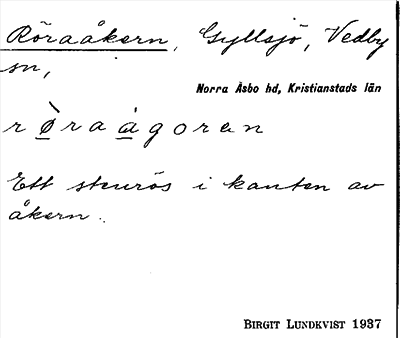 Röraåkern, Gyllsjö, Vedby
sn,
Norra Åsbo hd, Kristianstads län
r ø̀ r a a̲ g o r e n
Ett stenrös i kanten av
åkern.
BIRGIT LUNDKVIST 1937